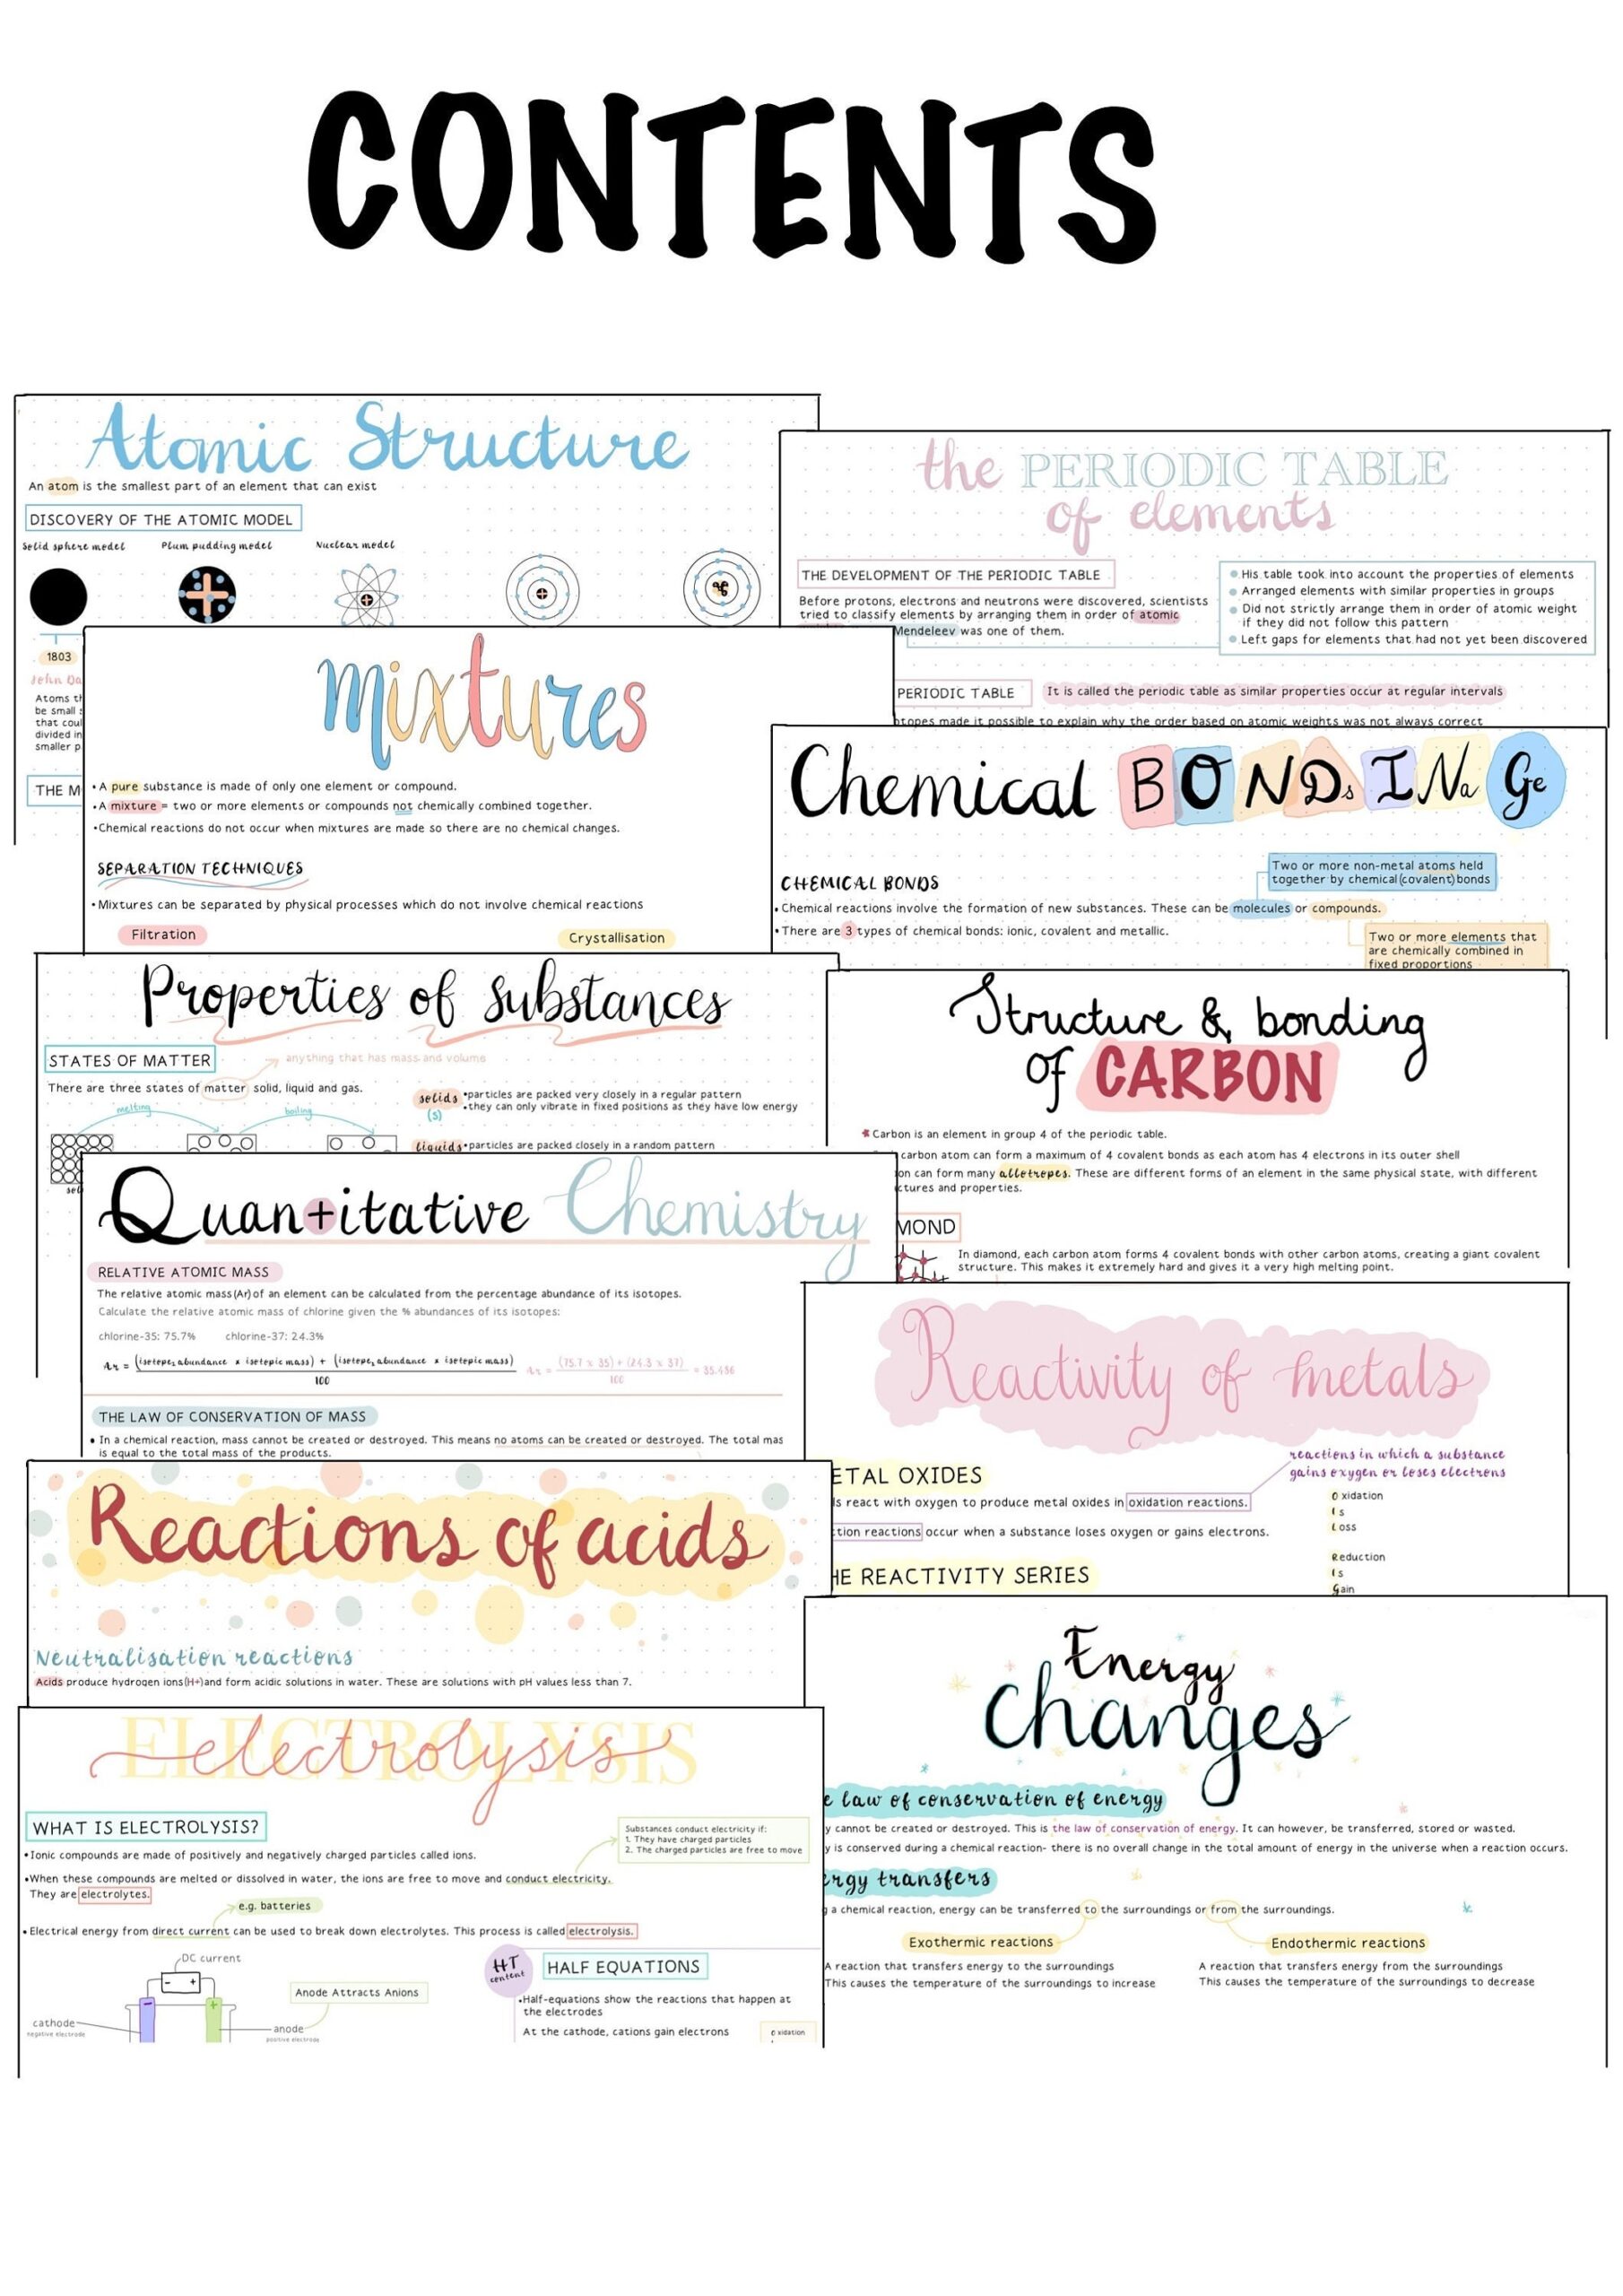 CONTENTS
Atomic Structure
An atom is the smallest part of an element that can exist
DISCOVERY OF THE ATOMIC MODEL
Solid sphere model
Plum pudding model
Nuclear model
1803
John Da
Atoms th
be small s
that coul
divided in
smaller p
THE M
the PERIODIC TABLE
of elements
THE DEVELOPMENT OF THE PERIODIC TABLE
Before protons, electrons and neutrons were discovered, scientists
tried to classify elements by arranging them in order of atomic
Mendeleev was one of them.
His table took into account the properties of elements
Arranged elements with similar properties in groups
Did not strictly arrange them in order of atomic weight
if they did not follow this pattern
Left gaps for elements that had not yet been discovered
PERIODIC TABLE
It is called the periodic table as similar properties occur at regular intervals
otopes made it possible to explain why the order based on atomic weights was not always correct
mixtures
• A pure substance is made of only one element or compound.
• A mixture = two or more elements or compounds not chemically combined together.
•Chemical reactions do not occur when mixtures are made so there are no chemical changes.
SEPARATION TECHNIQUES
• Mixtures can be separated by physical processes which do not involve chemical reactions
Filtration
Crystallisation
Chemical BONDsINaGe
CHEMICAL BONDS
Two or more non-metal atoms held
together by chemical (covalent) bonds
• Chemical reactions involve the formation of new substances. These can be molecules or compounds.
• There are 3 types of chemical bonds: ionic, covalent and metallic.
Two or more elements that
are chemically combined in
fixed proportions
Properties of substances
STATES OF MATTER
anything that has mass and volume
There are three states of matter solid, liquid and gas.
melting
boiling
solids
(s)
•particles are packed very closely in a regular pattern
•they can only vibrate in fixed positions as they have low energy
liquids •particles are packed closely in a random pattern
sol
Structure & bonding
of CARBON
Carbon is an element in group 4 of the periodic table.
carbon atom can form a maximum of 4 covalent bonds as each atom has 4 electrons in its outer shell
on can form many allotropes. These are different forms of an element in the same physical state, with different
ctures and properties.
MOND
In diamond, each carbon atom forms 4 covalent bonds with other carbon atoms, creating a giant covalent
structure. This makes it extremely hard and gives it a very high melting point.
Quantitative Chemistry
RELATIVE ATOMIC MASS
The relative atomic mass (Ar) of an element can be calculated from the percentage abundance of its isotopes.
Calculate the relative atomic mass of chlorine given the % abundances of its isotopes:
chlorine-35: 75.7% chlorine-37: 24.3%
Ar = (isotope₁ abundance x isotopic mass) + (isotope₂ abundance x isotopic mass)
100
Ar = (75.7 x 35) + (24.3 x 37) = 35.486
100
THE LAW OF CONSERVATION OF MASS
• In a chemical reaction, mass cannot be created or destroyed. This means no atoms can be created or destroyed. The total mas
is equal to the total mass of the products.
Reactivity of metals
reactions in which a substance
gains oxygen or loses electrons
ETAL OXIDES
ls react with oxygen to produce metal oxides in oxidation reactions.
ction reactions occur when a substance loses oxygen or gains electrons.
HE REACTIVITY SERIES
Oxidation
Is
Loss
Reduction
Is
Gain
Reactions of acids
Neutralisation reactions
Acids produce hydrogen ions (H+) and form acidic solutions in water. These are solutions with pH values less than 7.
Energy
Changes
e law of conservation of energy
y cannot be created or destroyed. This is the law of conservation of energy. It can however, be transferred, stored or wasted.
y is conserved during a chemical reaction- there is no overall change in the total amount of energy in the universe when a reaction occurs.
ergy transfers
g a chemical reaction, energy can be transferred to the surroundings or from the surroundings.
Exothermic reactions
A reaction that transfers energy to the surroundings
This causes the temperature of the surroundings to increase
Endothermic reactions
A reaction that transfers energy from the surroundings
This causes the temperature of the surroundings to decrease
ELECTROLYSIS
electrolysis
WHAT IS ELECTROLYSIS?
Substances conduct electricity if:
1. They have charged particles
2. The charged particles are free to move
•Ionic compounds are made of positively and negatively charged particles called ions.
•When these compounds are melted or dissolved in water, the ions are free to move and conduct electricity.
They are electrolytes.
e.g. batteries
• Electrical energy from direct current can be used to break down electrolytes. This process is called electrolysis.
DC current
- +
Anode Attracts Anions
cathode
negative electrode
anode
positive electrode
HT
content
HALF EQUATIONS
•Half-equations show the reactions that happen at
the electrodes
At the cathode, cations gain electrons
Oxidation